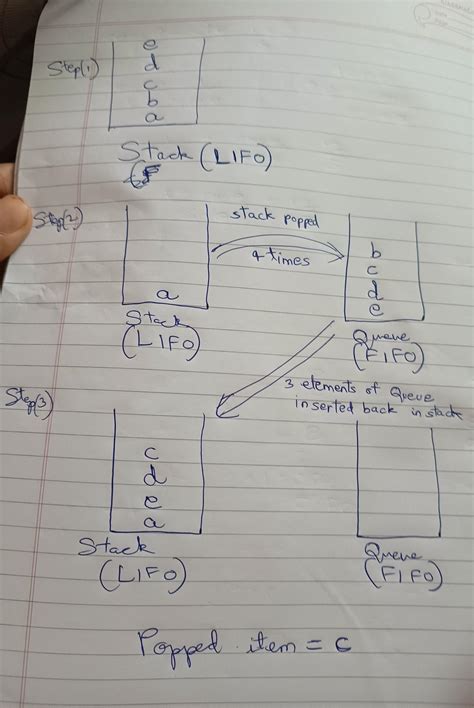 Step(1)
e
d
c
b
a
Stack (LIFO)
Step(2)
stack popped
4 times
a
b
c
d
e
Stack
(LIFO)
Queue
(FIFO)
3 elements of Queue
inserted back in stack
Step(3)
c
d
e
a
Stack
(LIFO)
Queue
(FIFO)
Popped item = c